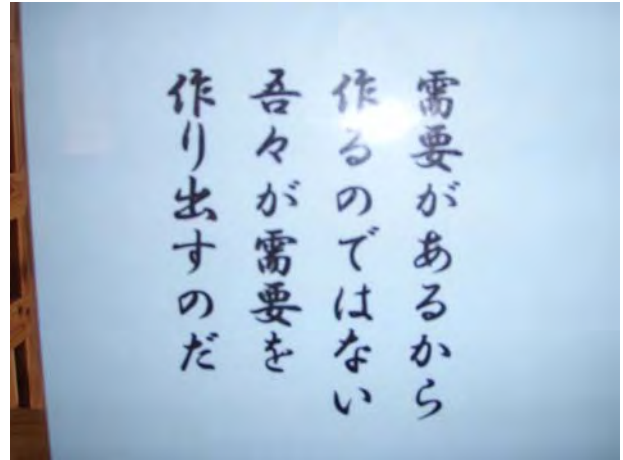 需要があるから
作るのではない
吾々が需要を
作り出すのだ